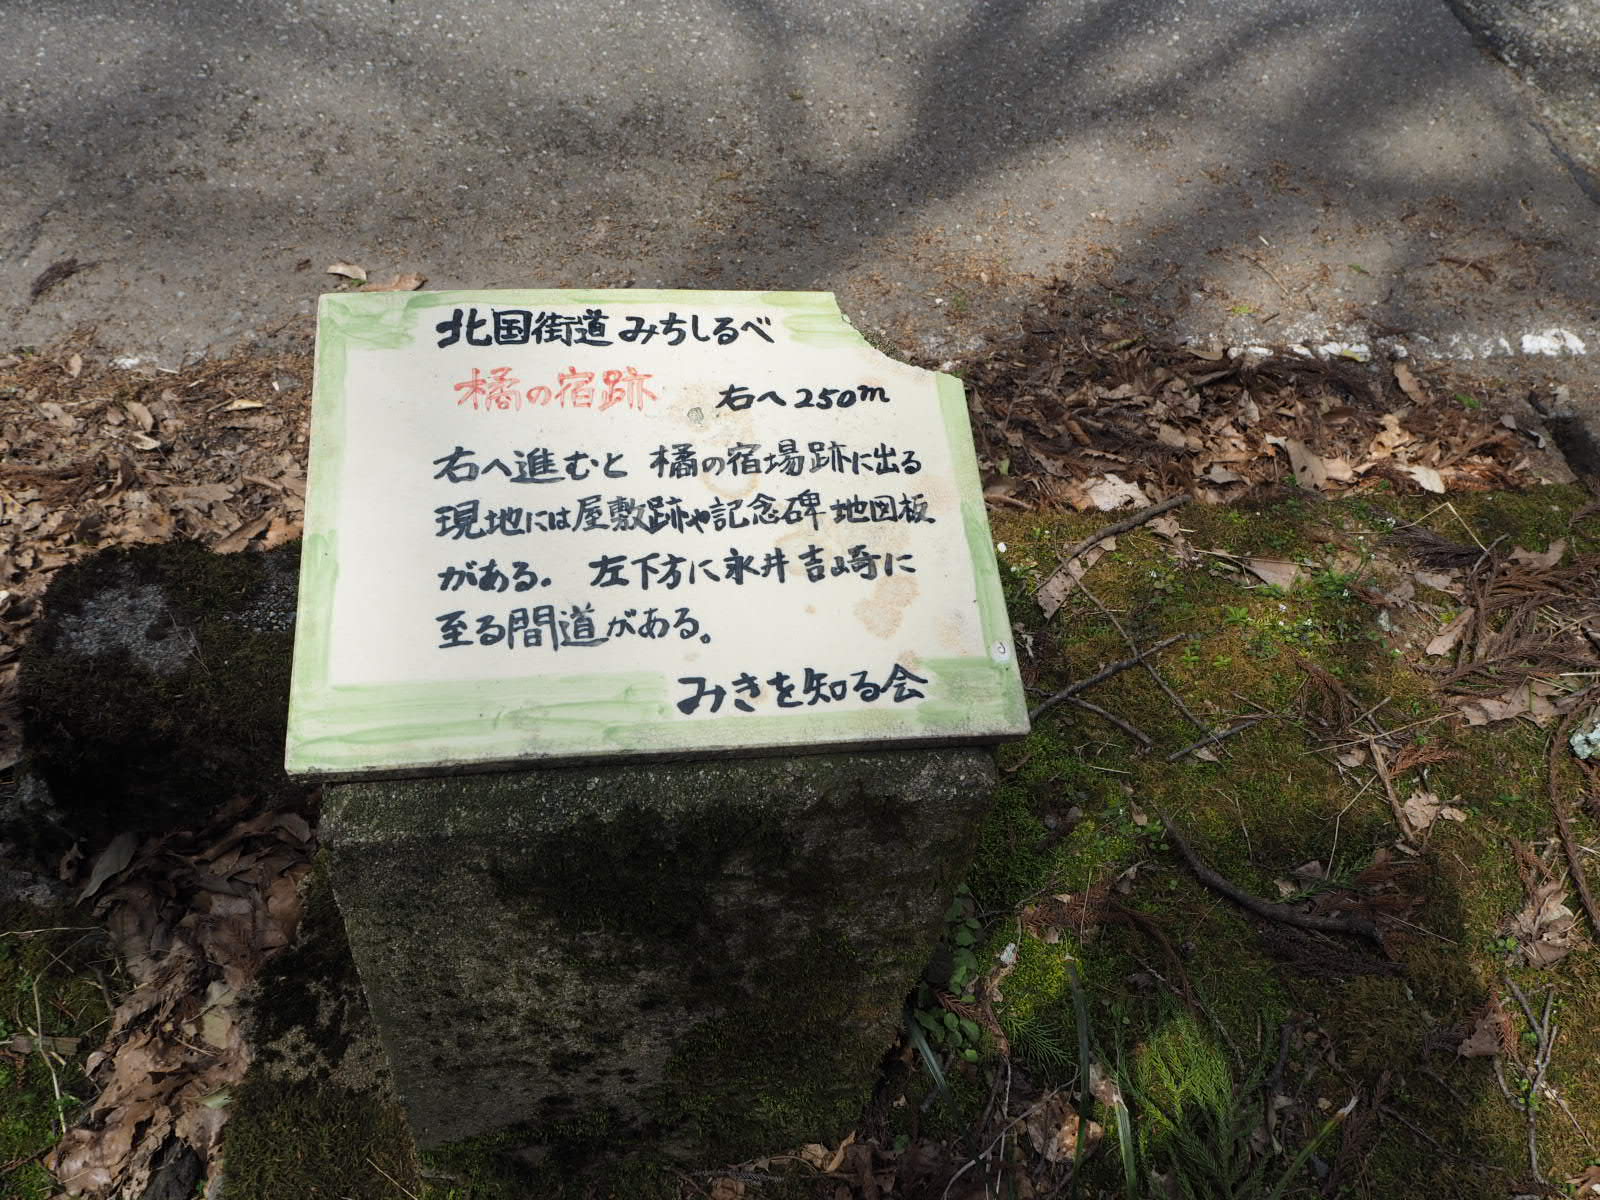 北国街道 みちしるべ
橘の宿跡 右へ250m
右へ進むと 橘の宿場跡に出る
現地には屋敷跡や記念碑 地図板
がある。 左下方に永井吉崎に
至る間道がある。
みきを知る会